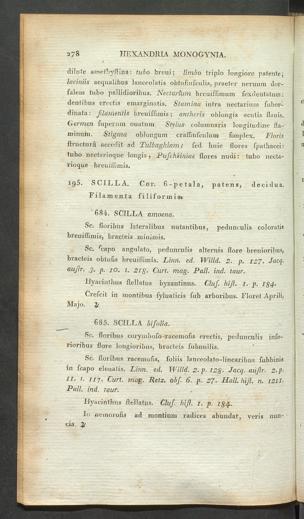 278 HEXANDRIA MONOGYNIA.
dilute amethyſtina: tubo brevi; limbo triplo longiore patente;
laciniis aequalibus lanceolatis obtuſiuſculis, praeter nervum dor-
ſalem tubo pallidioribus. Nectarium breviſſimum ſexdentatum:
dentibus erectis emarginatis. Stamina intra nectarium ſubor-
dinata: filamentis breviſſimis; antheris oblongis acutis flavis.
Germen ſuperum ovatum. Stylus columnaris longitudine ſta-
minum. Stigma oblongum craſſiuſculum ſimplex. Floris
ſtructurâ accedit ad Tulbaghiam; ſed huic flores ſpathacei:
tubo nectarioque longis; Puſchkiniae flores nudi: tubo necta-
rioque breviſſimis.
195. SCILLA. Cor. 6-petala, patens, decidua.
Filamenta filiformia.
684. SCILLA amoena.
Sc. floribus lateralibus nutantibus, pedunculis coloratis
breviſſimis, bracteis minimis.
Sc. ſcapo angulato, pedunculis alternis flore brevioribus,
bracteis obtuſis breviſſimis. Linn. ed. Willd. 2. p. 127. Jacq.
auſtr. 3. p. 10. t. 218. Curt. mag. Pall. ind. taur.
Hyacinthus ſtellatus byzantinus. Cluſ. hiſt. 1. p. 184.
Creſcit in montibus ſylvaticis ſub arboribus. Floret Aprili,
Majo. ♃
685. SCILLA bifolia.
Sc. floribus corymboſo-racemoſis erectis, pedunculis infe-
rioribus flore longioribus, bracteis ſubnullis.
Sc. floribus racemoſis, foliis lanceolato-linearibus ſubbinis
in ſcapo elevatis. Linn. ed. Willd. 2. p. 128. Jacq. auſtr. 2. p.
11. t. 117. Curt. mag. Retz. obſ. 6. p. 27. Hall. hiſt. n. 1211.
Pall. ind. taur.
Hyacinthus ſtellatus. Cluſ. hiſt. 1. p. 184.
In nemoroſis ad montium radices abundat, veris nun-
cia. ♃